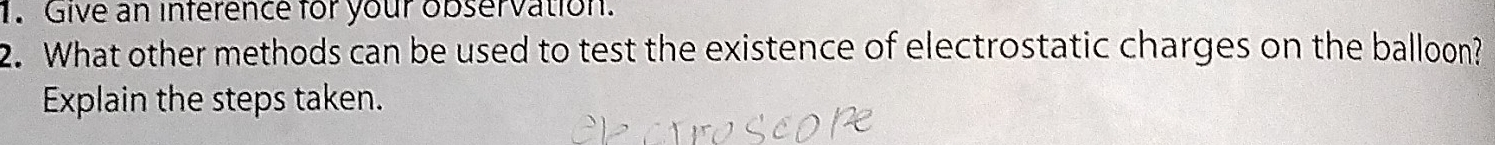 1. Give an inference for your observation.
2. What other methods can be used to test the existence of electrostatic charges on the balloon?
Explain the steps taken.
electroscope